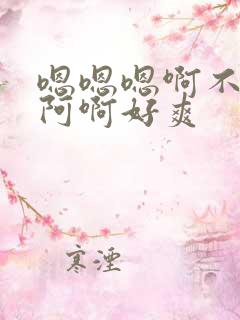 嗯嗯嗯啊不
阿啊好爽
寒湮